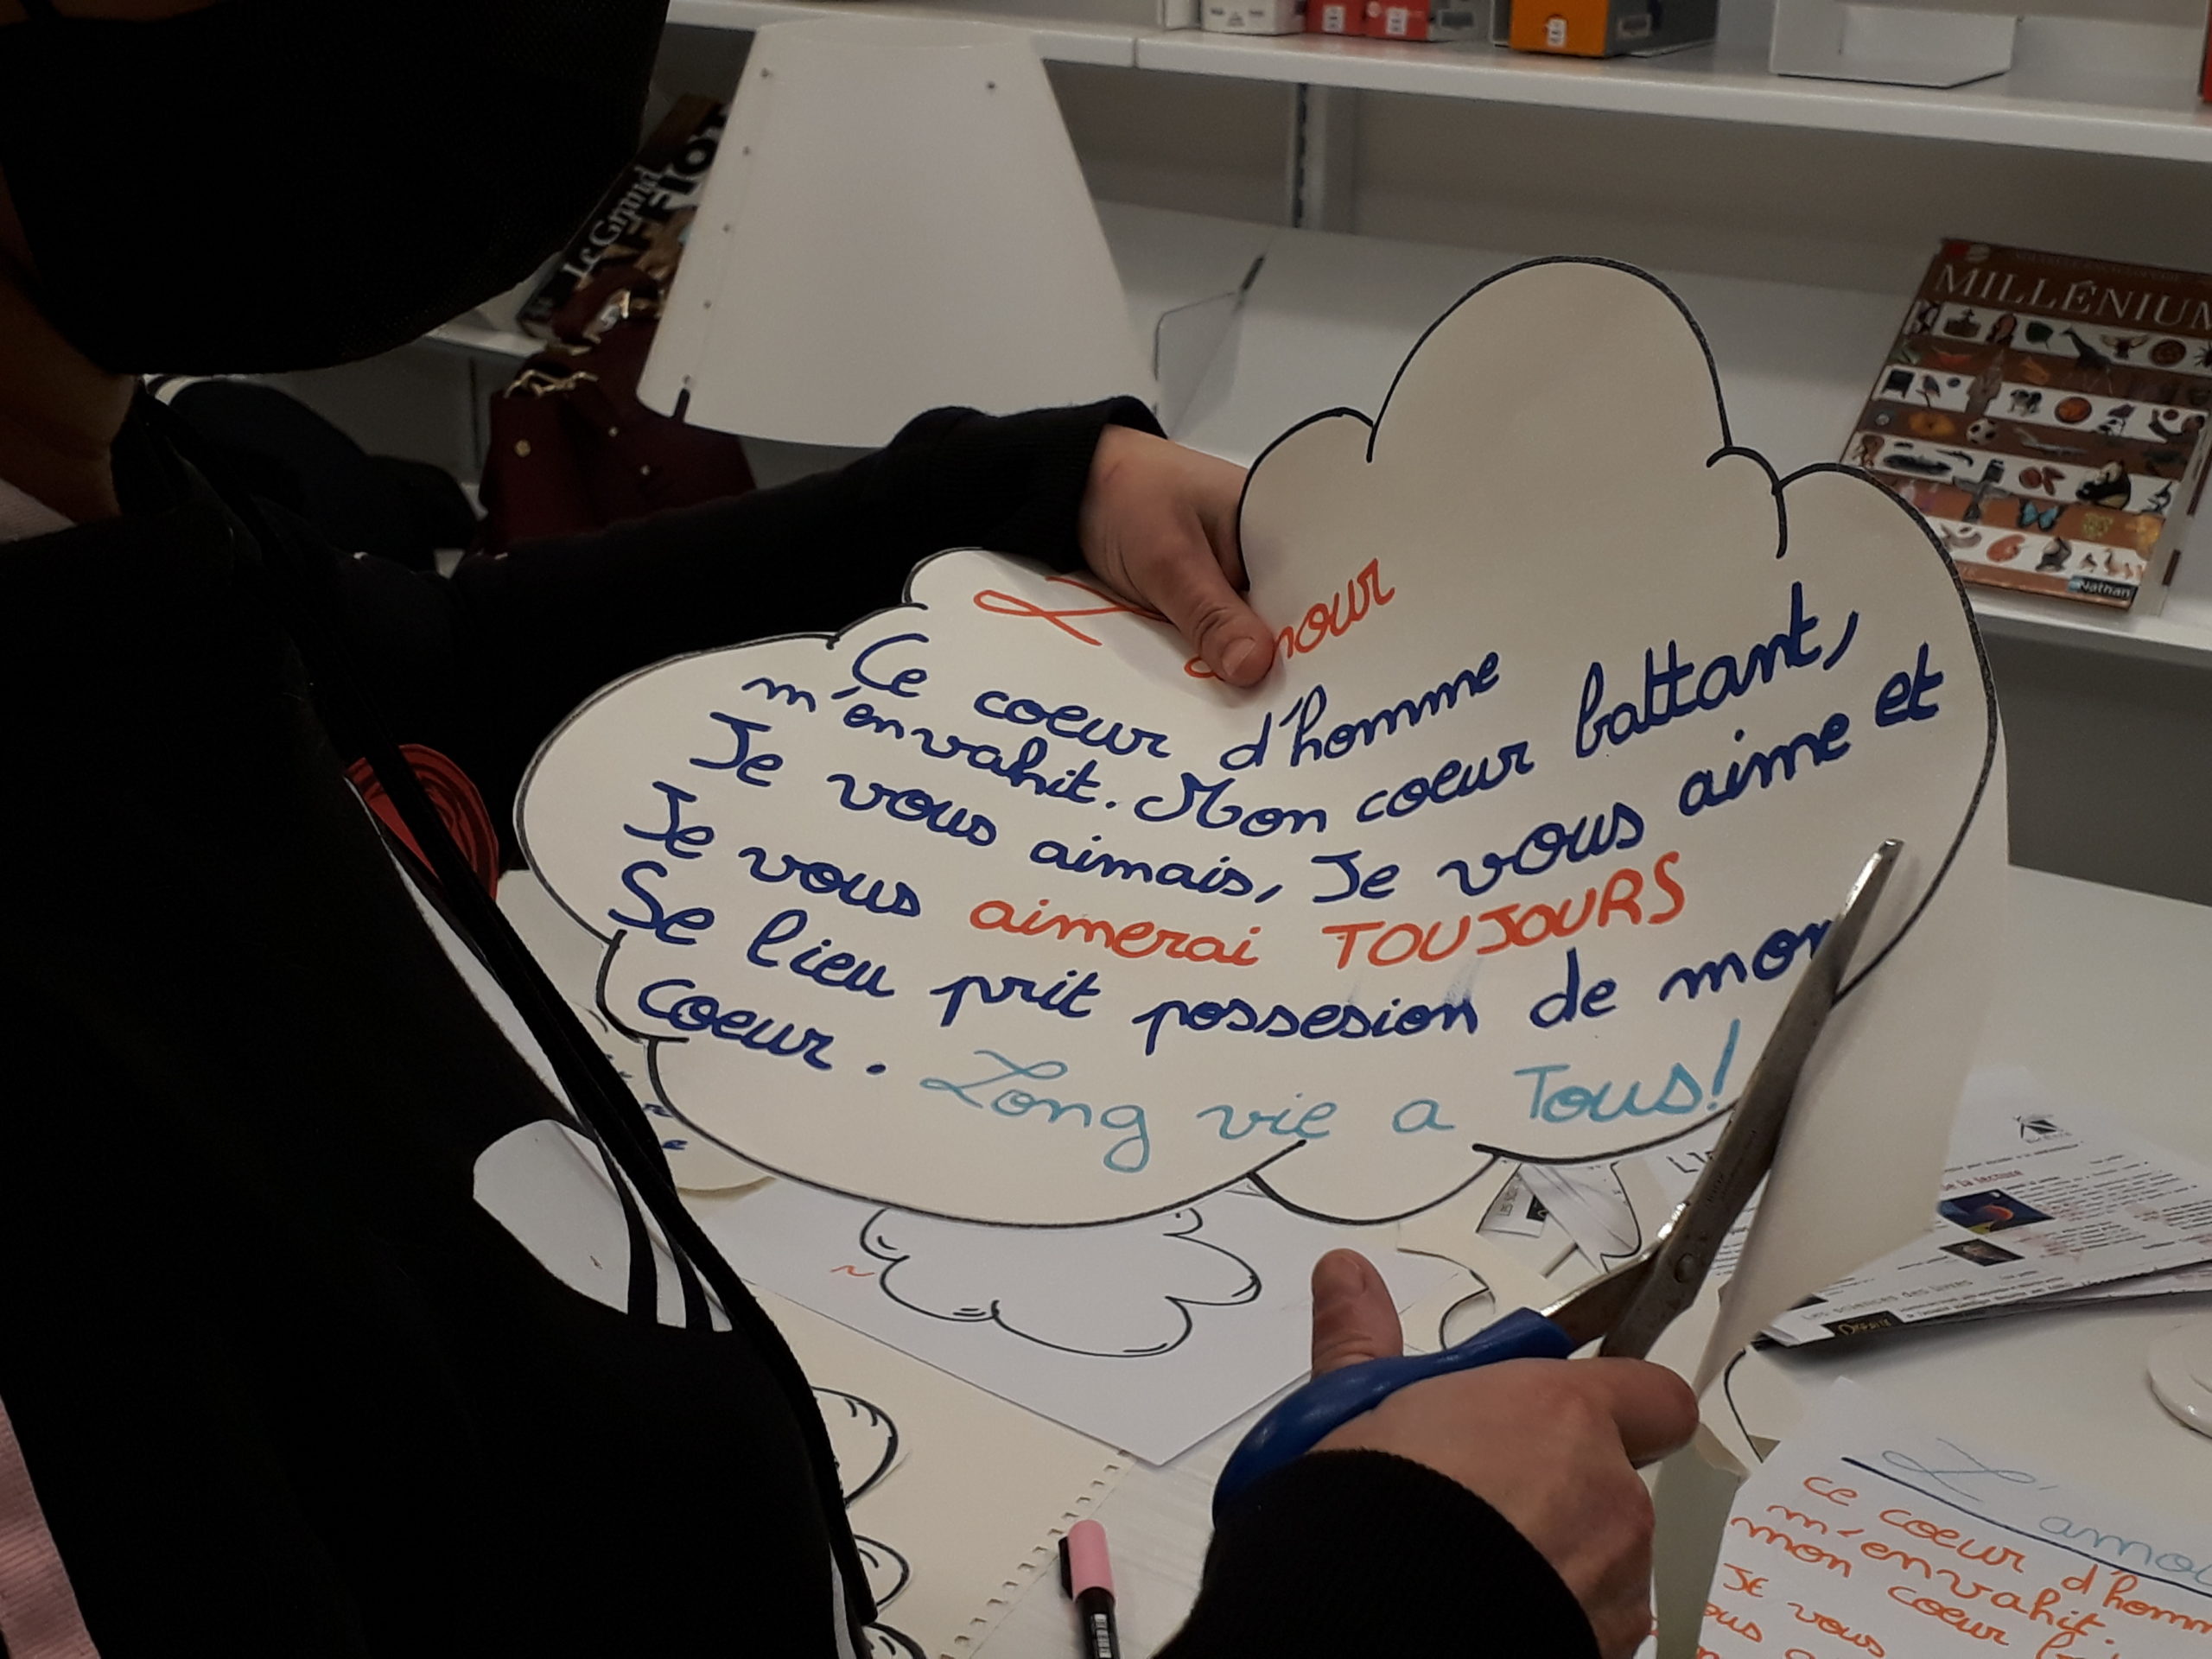 Le Grand
MILLÉNIUM
Nathan
L'amour
Ce coeur d'homme
m'envahit. Mon coeur battant,
Je vous aimais, Je vous aime et
Je vous aimerai TOUJOURS
Se lieu prit possesion de mon
coeur. Long vie a Tous!
de la lecture
Les sciences des livres
L'amou
Ce coeur d'homm
m'envahit.
mon coeur
Je vous